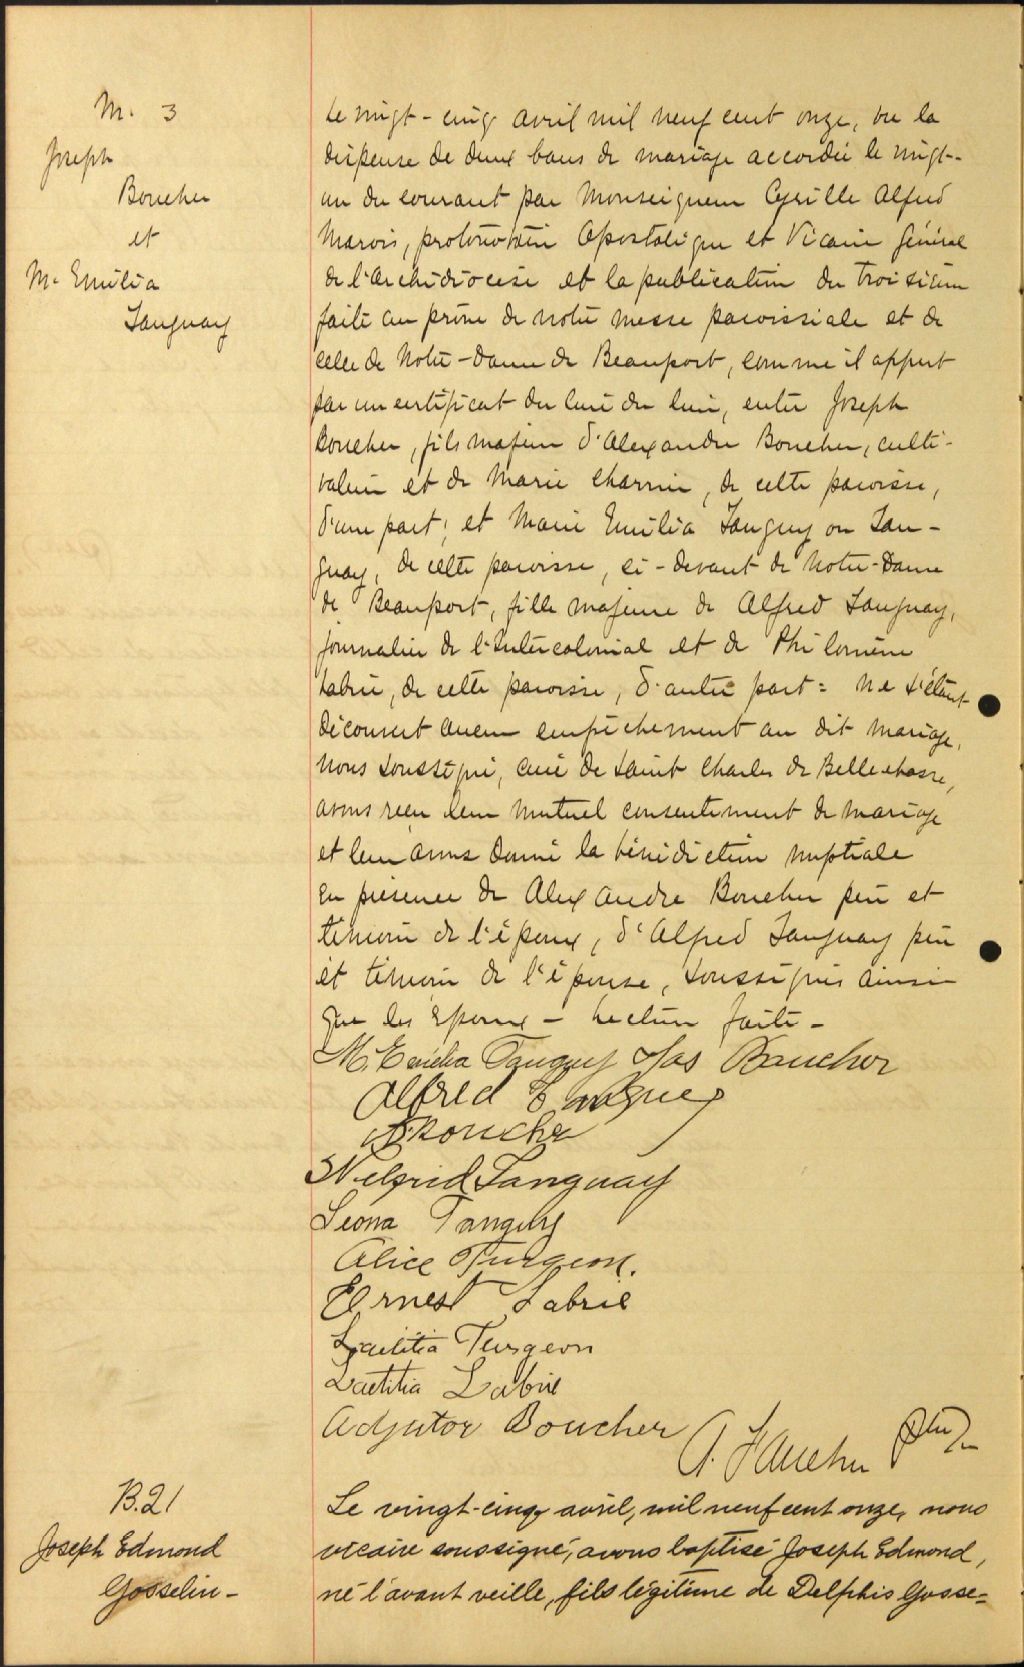 M. 3
Joseph
Boucher
et
M. Emilia
Tanguay
Le vingt-cinq avril mil neuf cent onze, vu la
dispense de deux bans de mariage accordée le vingt-
un du courant par Monseigneur Cyrille Alfred
Marois, protonotaire Apostolique et Vicaire Général
de l'Archidiocèse et la publication du troisième
faite au prône de notre messe paroissiale et de
celle de Notre-Dame de Beauport, comme il appert
par un certificat du curé du lieu, entre Joseph
Boucher, fils majeur d'Alexandre Boucher, culti-
vateur et de Marie Charrier, de cette paroisse,
d'une part; et Marie Emilia Tanguy ou Tan-
guay, de cette paroisse, ci-devant de Notre-Dame
de Beauport, fille majeure de Alfred Tanguay,
journalier de l'Intercolonial et de Philomène
Labrie, de cette paroisse, d'autre part: ne s'étant
découvert aucun empêchement au dit mariage,
Nous soussigné, curé de Saint Charles de Bellechasse,
avons reçu leur mutuel consentement de mariage
et leur avons donné la bénédiction nuptiale
en présence de Alexandre Boucher père et
témoin de l'époux, d'Alfred Tanguay père
et témoin de l'épouse, soussignés ainsi
que les Epoux - Lecture faite -
M. Emilia Tanguy Jos Boucher
Alfred Tanguey
A. Boucher
Wilfrid Tanguay
Léona Tanguy
Alice Turgeon.
Ernest Labrie
Laetitia Turgeon
Laetitia Labrie
Adjutor Boucher
A. Faucher Ptre
B. 21
Joseph Edmond
Gosselin -
Le vingt-cinq avril, mil neuf cent onze, nous
vicaire soussigné, avons baptisé Joseph Edmond,
né l'avant veille, fils légitime de Delphis Gosse=